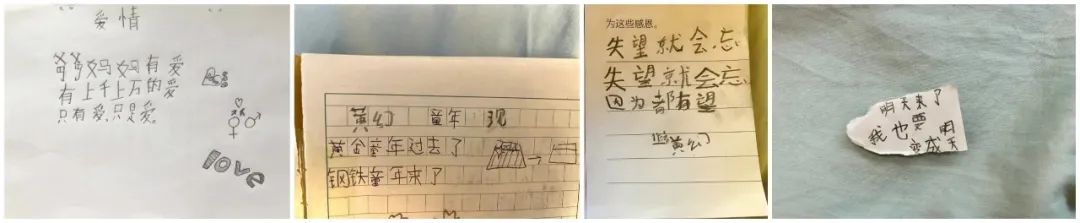 爱情
爷爷妈妈有爱
有上千上万的爱
只有爱,只是爱。
love
黄幻 童年 现
黄金童年过去了
钢铁童年来了
为这些感恩。
失望就会忘
失望就会忘
因为都有望
黄幻
明天来了
我也要
变成明天